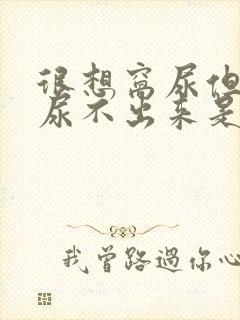 很想窝尿但
尿不出来是
我曾路過你心